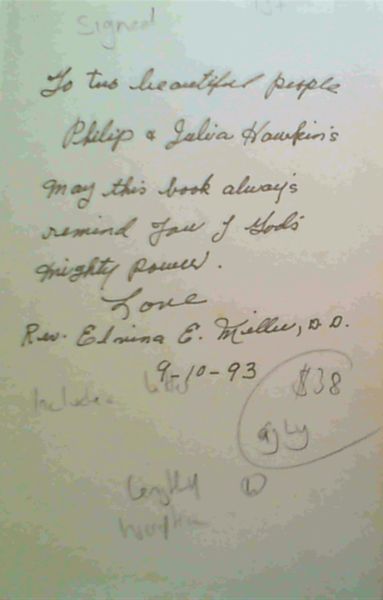 Signed
1st
To two beautiful people
Philip & Julia Hawkin's
May this book alway's
remind you of God's
mighty power.
Love
Rev. Elvina E. Miller, D.D.
9-10-93
$38
Includes